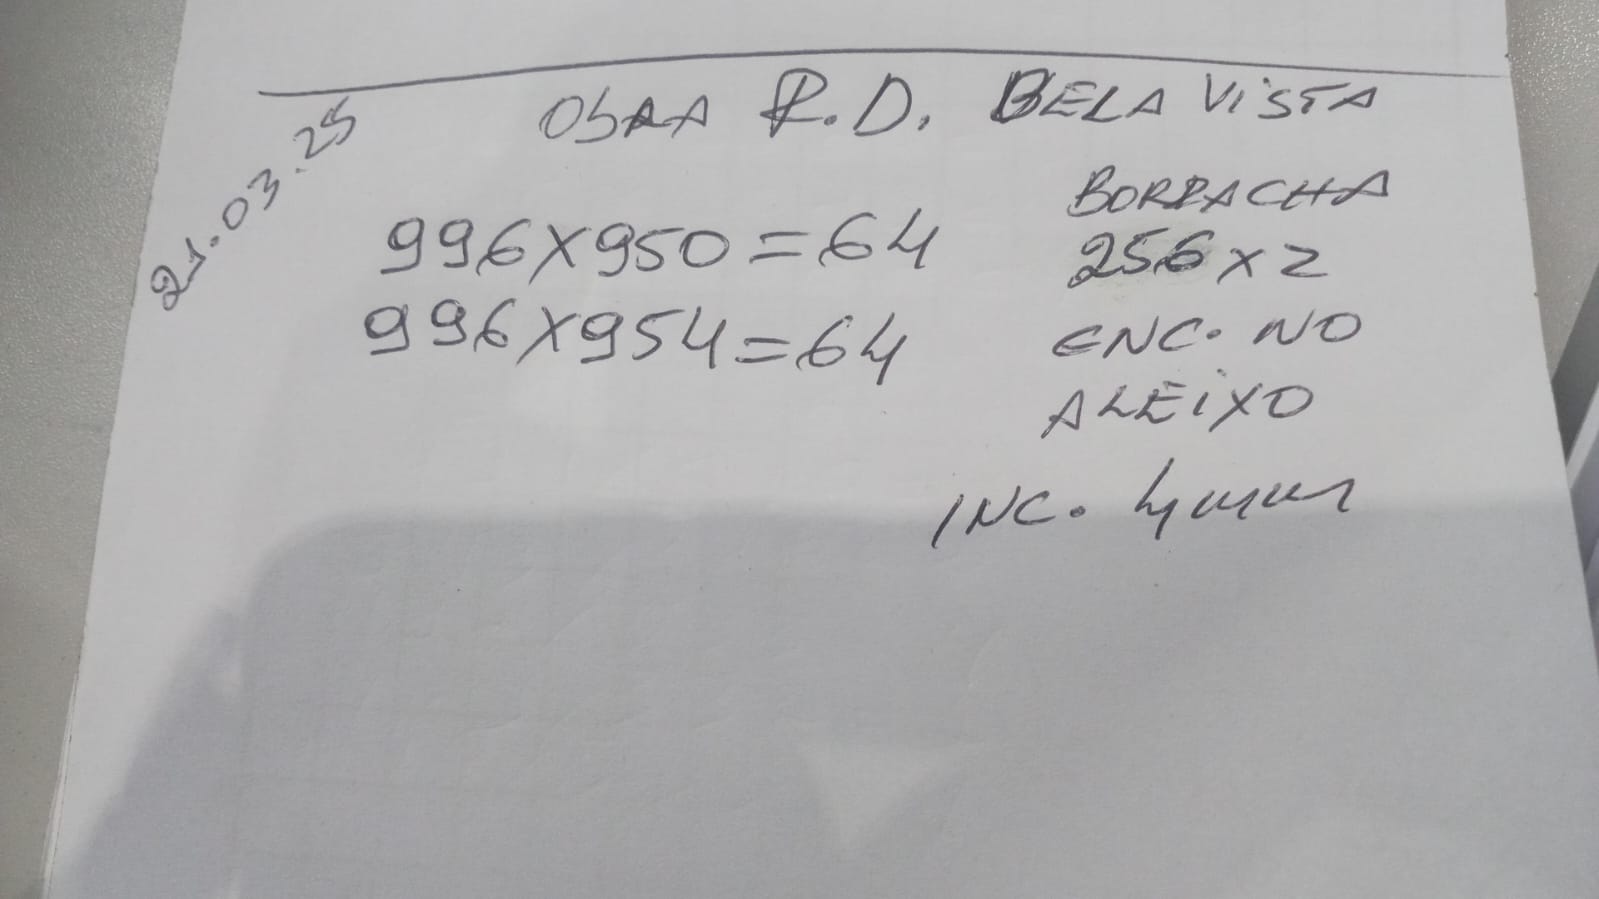 21.03.25
OBRA R.D. BELA VISTA
996X950=64
996X954=64
BORRACHA
256 x 2
ENC. NO
ALEIXO
INC. 4mm